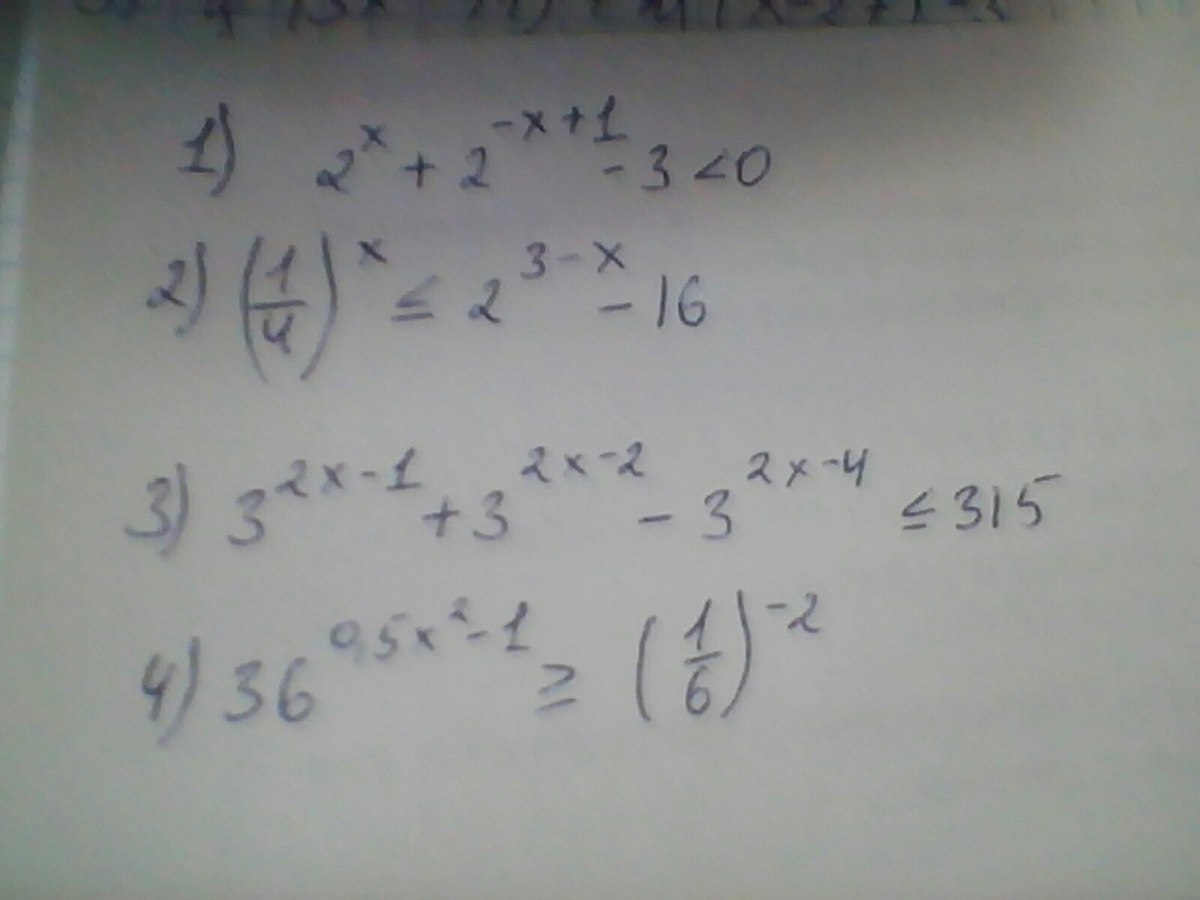 1) 2^x + 2^(-x+1) - 3 < 0
2) (1/4)^x ≤ 2^(3-x) - 16
3) 3^(2x-1) + 3^(2x-2) - 3^(2x-4) ≤ 315
4) 36^(0,5x^2-1) ≥ (1/6)^(-2)